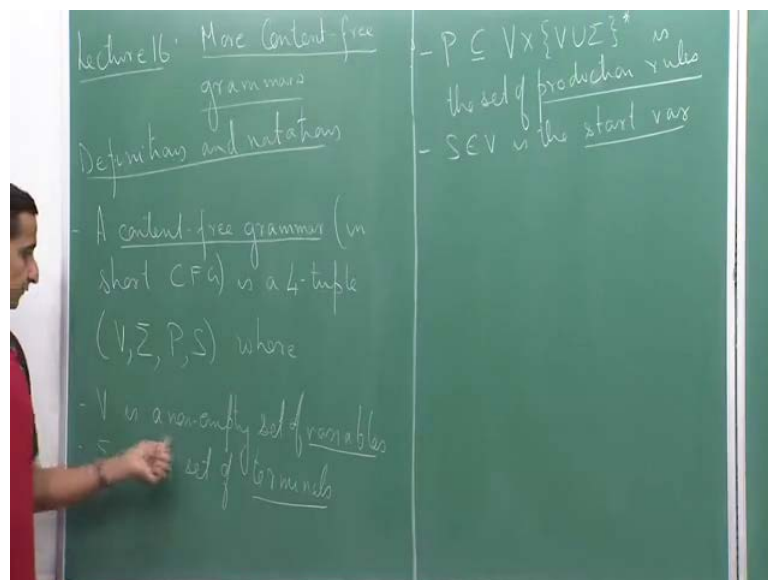 Lecture 16: More Context-free
grammars
Definitions and notations
- A context-free grammar (in
short CFG) is a 4-tuple
(V, Σ, P, S) where
- V is a non-empty set of variables
- Σ set of terminals
- P ⊆ V × {V ∪ Σ}* is
the set of production rules
- S ∈ V is the start var